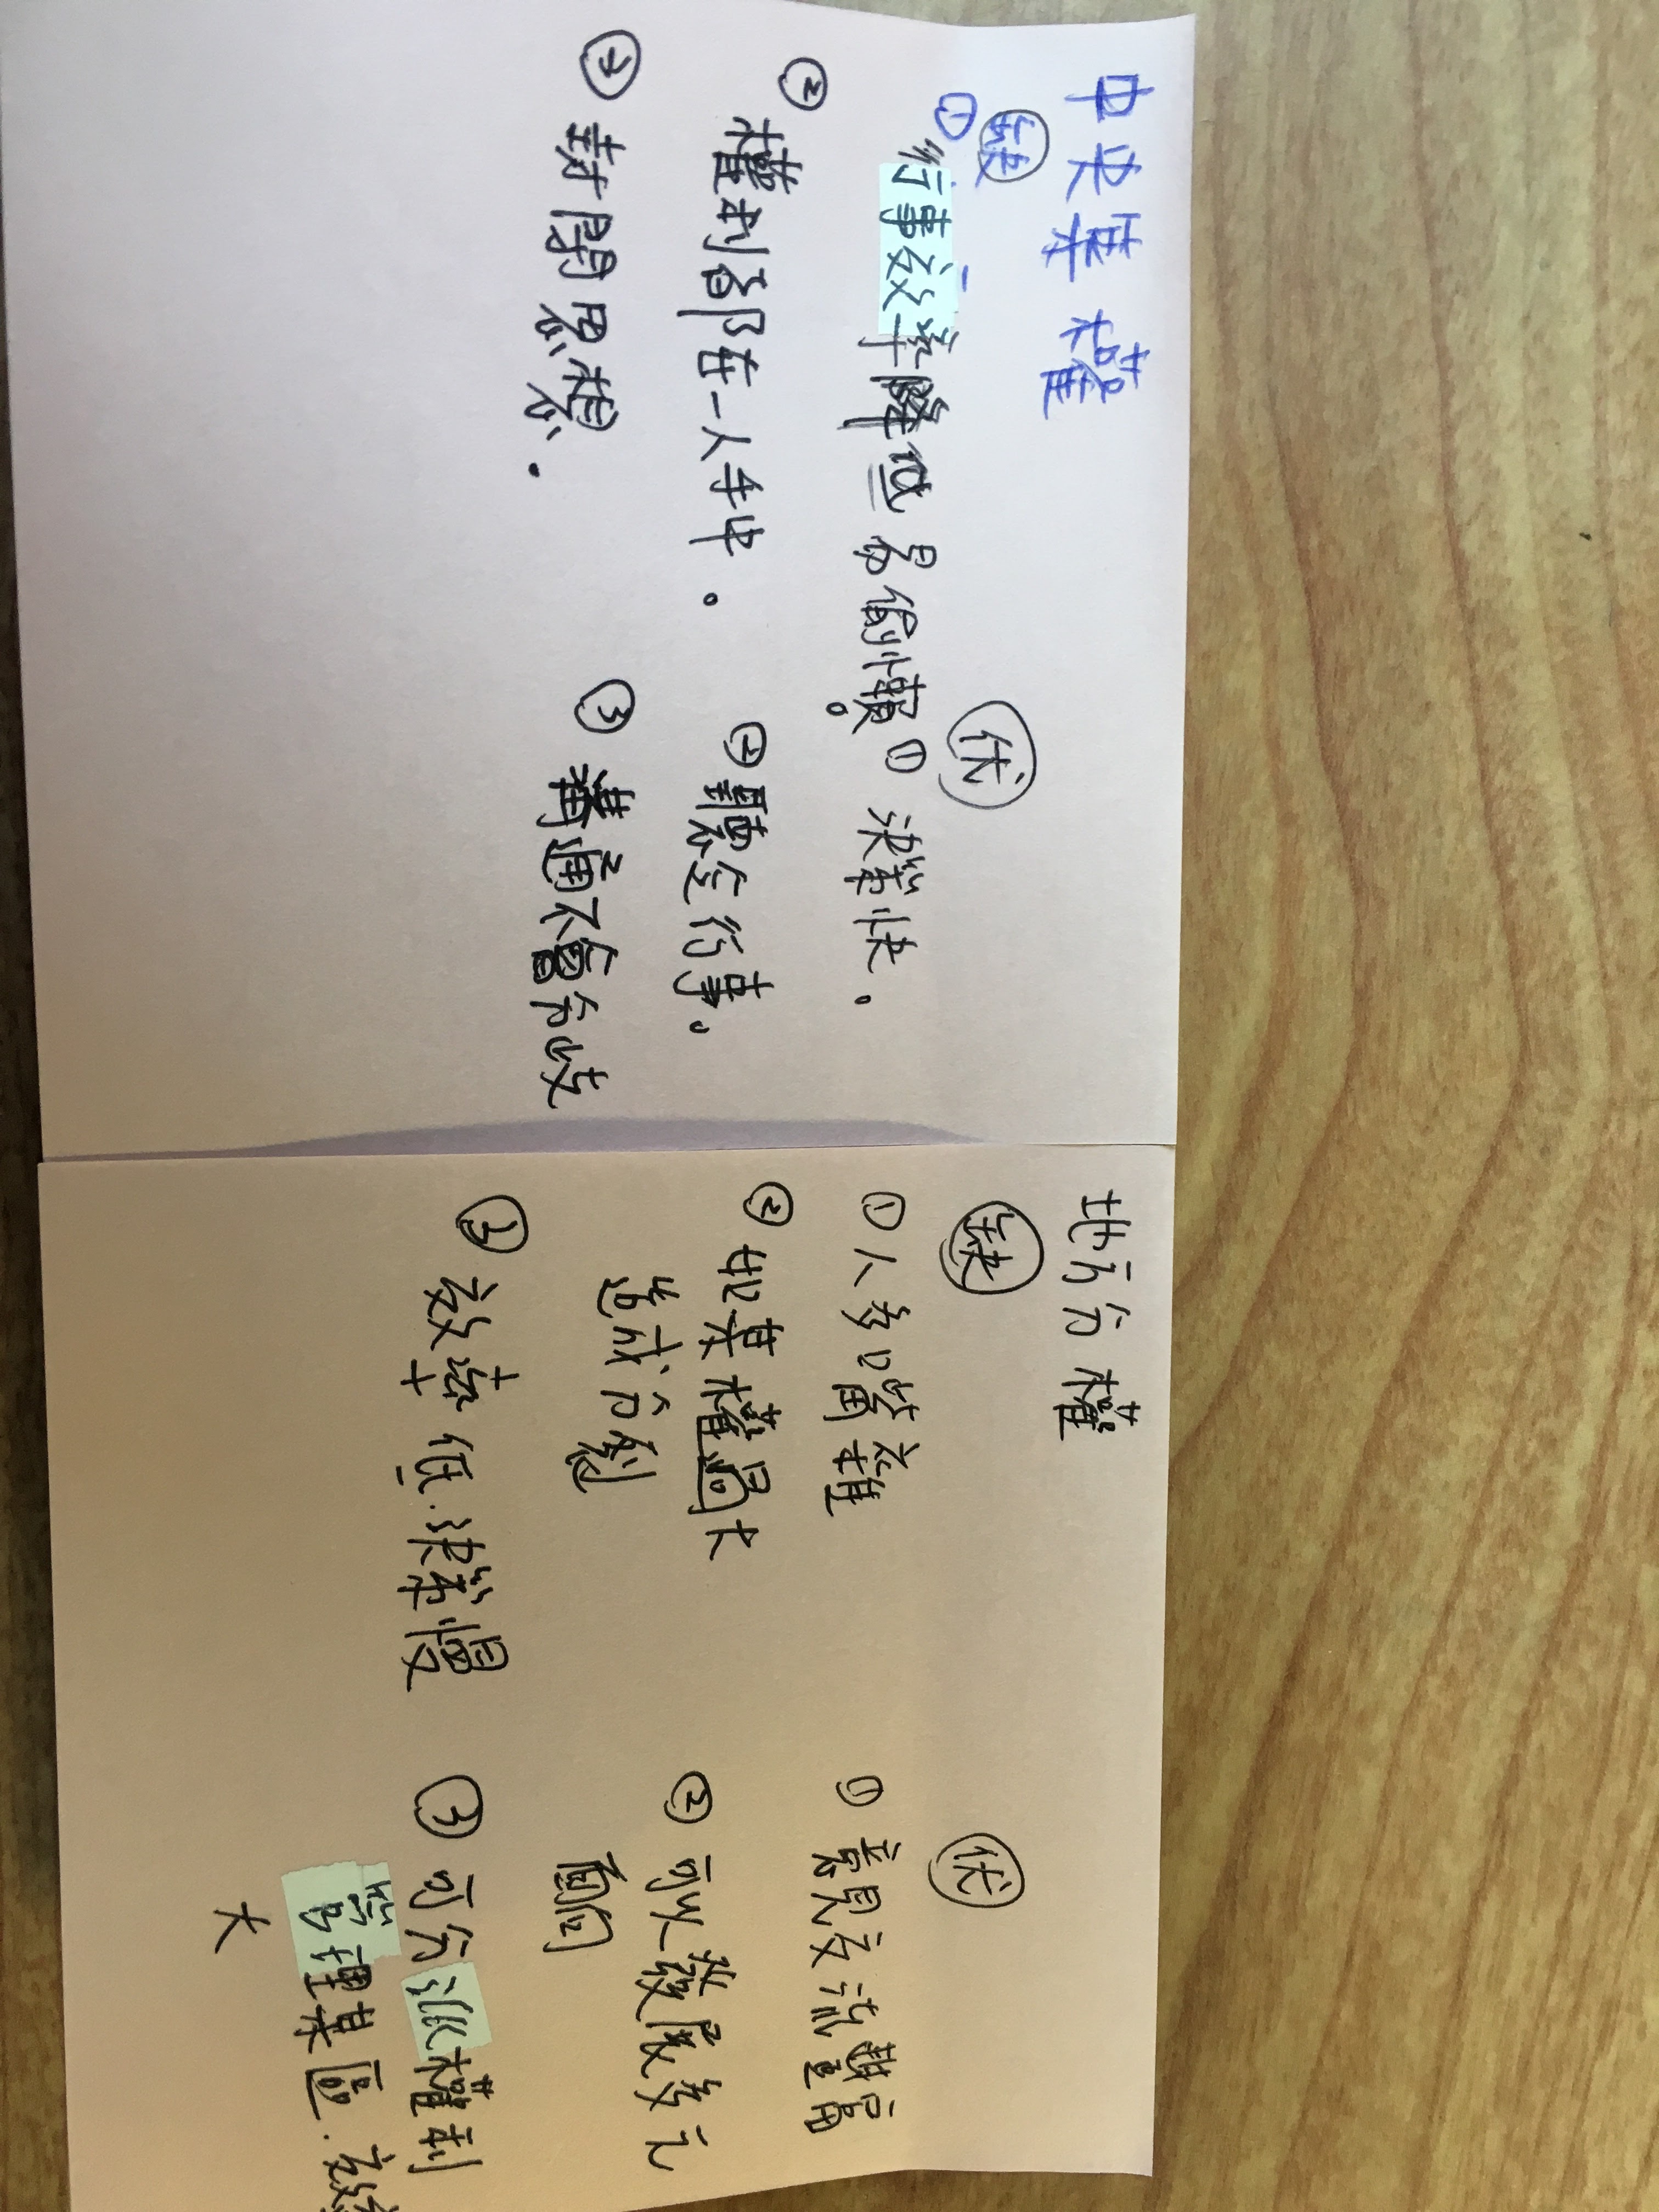 中央集權
缺
① 行事效率降低 易偷懶。
② 權利都在一人手中。
③ 封閉思想.
优
① 決策快.
② 聽令行事.
③ 溝通不會分岐
地方分權
缺
① 人多口嘴雜
② 如某權過大
造成分裂
③ 效率低.決策慢
优
① 意見交流豐富
② 可以發展多元
面向
③ 可分派權利
管理某區.效
大